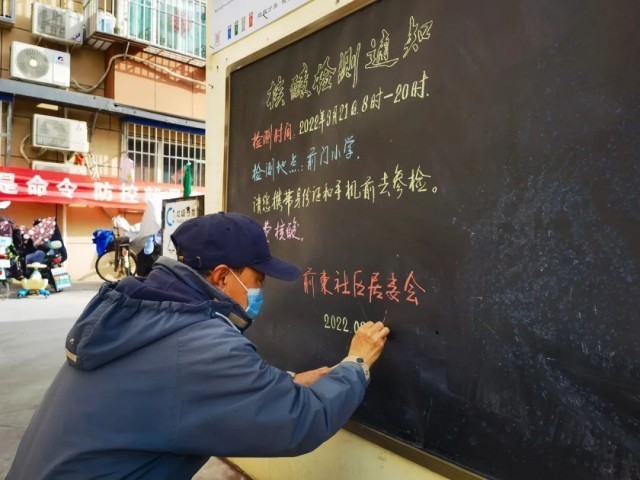 核酸检测通知
检测时间:2022年3月21日8时—20时.
检测地点:前门小学.
请您携带身份证和手机前去参检。
核酸.
前东社区居委会
2022.0
是命令 防控